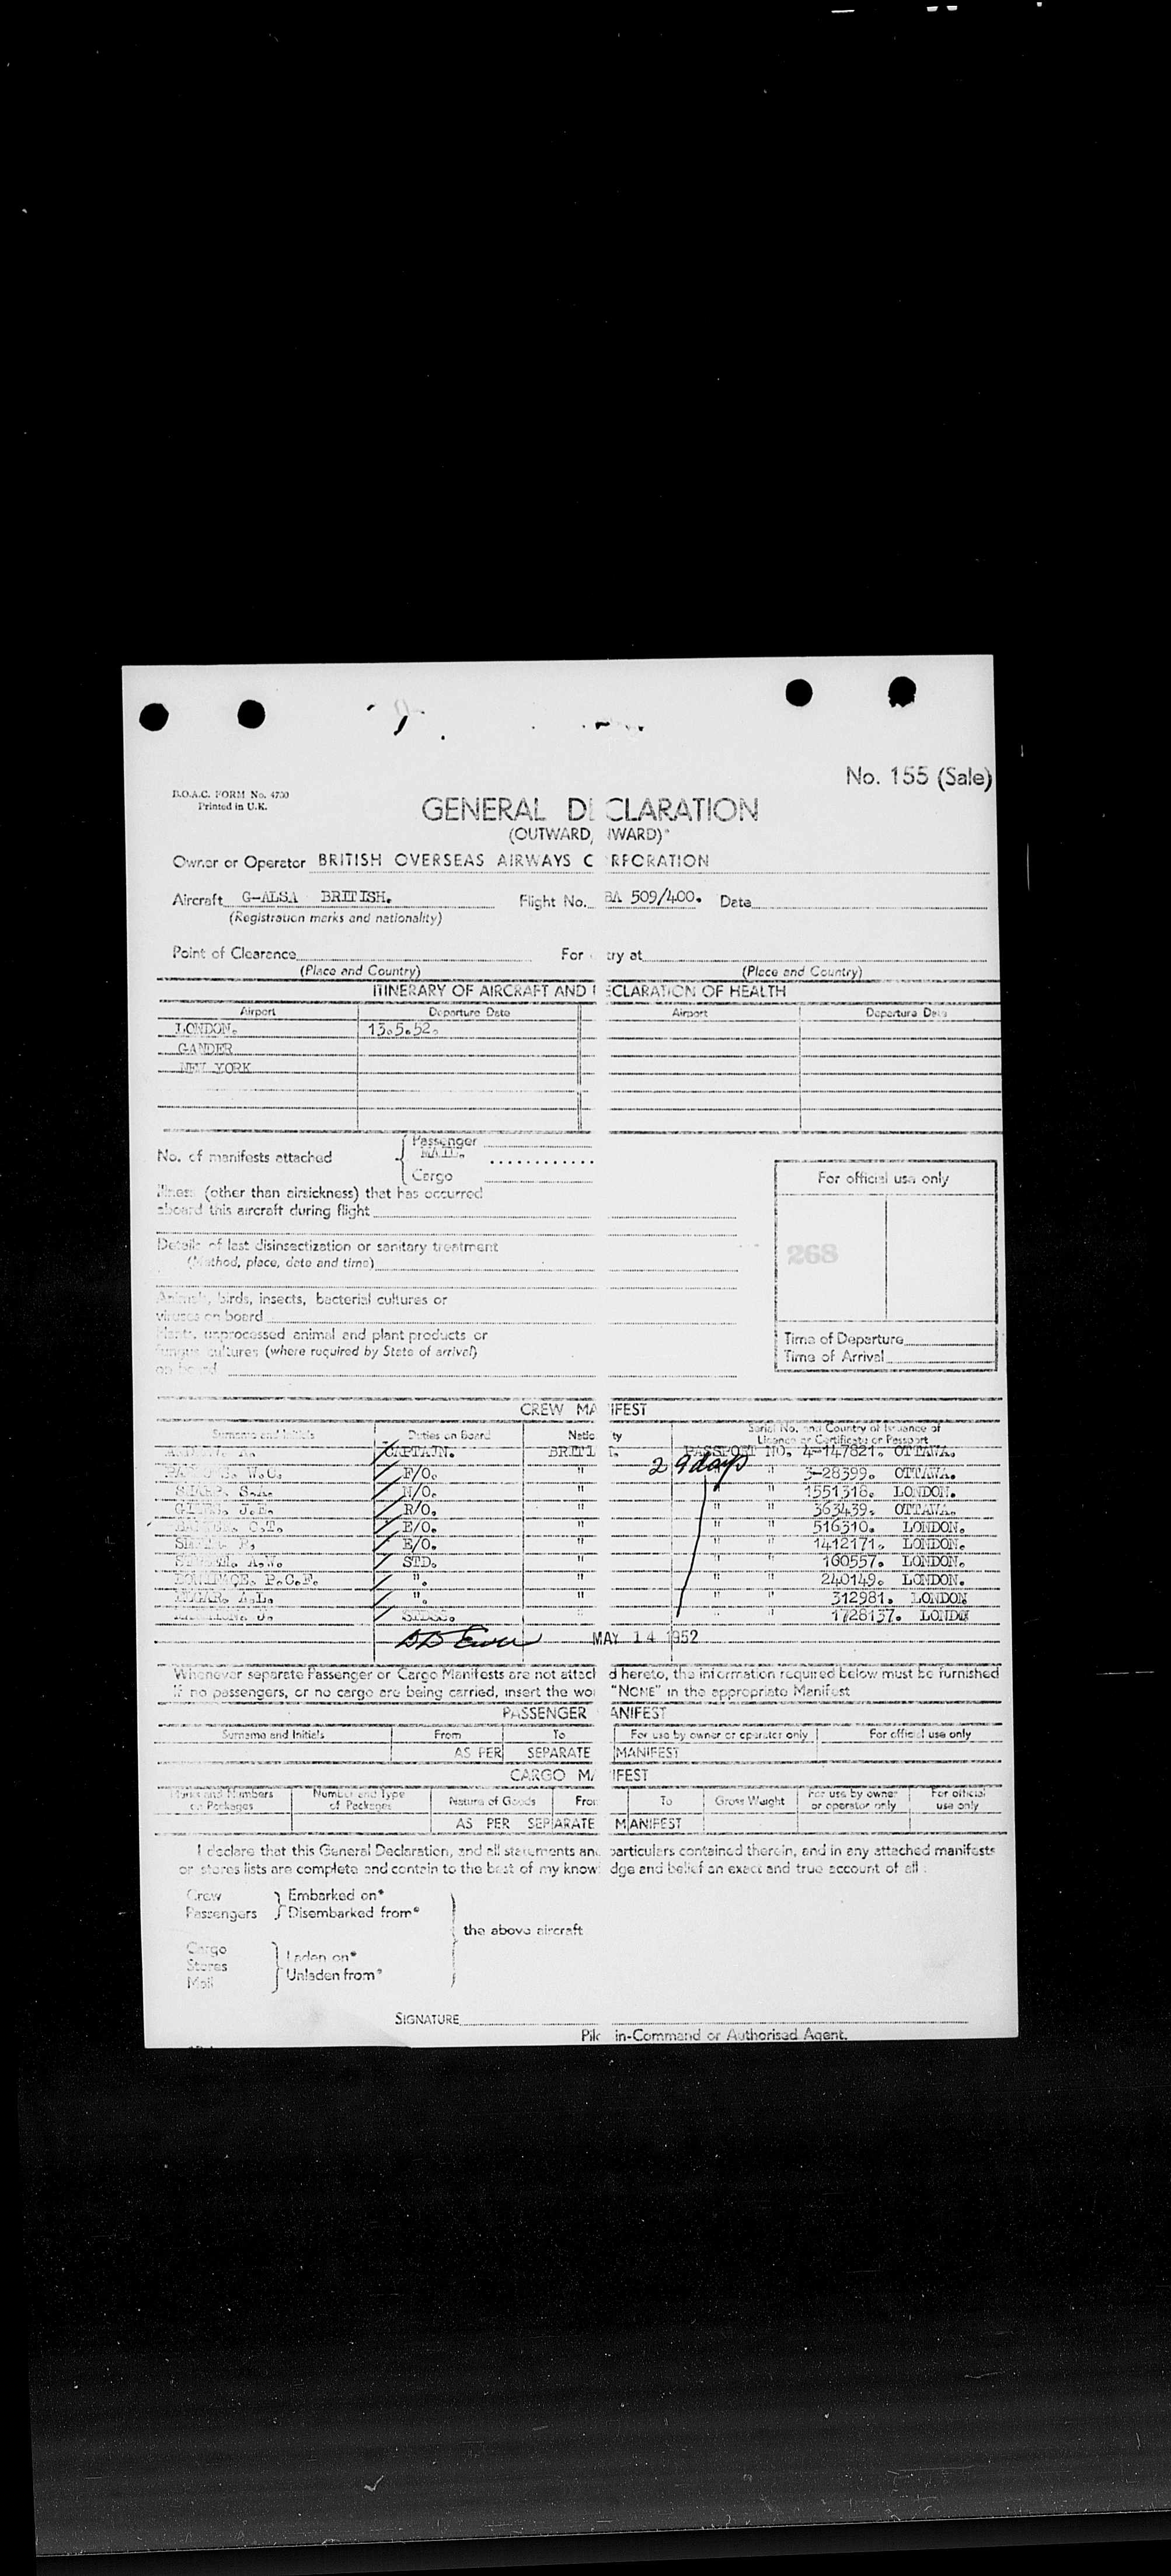 No. 155 (Sale)
B.O.A.C. FORM No. 4730
Printed in U.K.
GENERAL DECLARATION
(OUTWARD, INWARD)*
Owner or Operator BRITISH OVERSEAS AIRWAYS CORPORATION
Aircraft G-ALSA BRITISH. Flight No. BA 509/400. Date
(Registration marks and nationality)
Point of Clearance For try at
(Place and Country) (Place and Country)
ITINERARY OF AIRCRAFT AND DECLARATION OF HEALTH
Airport Departure Date Airport Departure Date
LONDON. 13.5.52.
GANDER
NEW YORK
Passenger
No. of manifests attached MAIL.
Cargo
Illness (other than airsickness) that has occurred
aboard this aircraft during flight
For official use only
Details of last disinsectization or sanitary treatment
(Method, place, date and time)
268
Animals, birds, insects, bacterial cultures or
viruses on board
Plants, unprocessed animal and plant products or
fungus cultures (where required by State of arrival)
on board
Time of Departure
Time of Arrival
CREW MANIFEST
Surname and Initials Duties on Board Nationality Serial No. and Country of Issuance of
Licence or Certificate or Passport
CAPTAIN. BRITI PASSPORT NO. 4-147821. OTTAWA.
W.C. F/O. " 29 days " 3-28399. OTTAWA.
SHARP. S.A. N/O. " " " 1551318. LONDON.
J.E. R/O. " " " 363439. OTTAWA.
C.T. E/O. " " " 516310. LONDON.
E/O. " " " 1412171. LONDON.
A.W. STD. " " " 160557. LONDON.
BONIFACE. P.C.F. ". " " " 240149. LONDON.
A.L. ". " " " 312981. LONDON
J. STDSS. " " " 1728137. LONDN
MAY 14 1952
Whenever separate Passenger or Cargo Manifests are not attached hereto, the information required below must be furnished
If no passengers, or no cargo are being carried, insert the wor "NONE" in the appropriate Manifest
PASSENGER MANIFEST
Surname and Initials From To For use by owner or operator only For official use only
AS PER SEPARATE MANIFEST
CARGO MANIFEST
Marks and Numbers on Packages Number and Type of Packages Nature of Goods From To Gross Weight For use by owner or operator only For official use only
AS PER SEPARATE MANIFEST
I declare that this General Declaration, and all statements and particulars contained therein, and in any attached manifests
or stores lists are complete and contain to the best of my knowledge and belief an exact and true account of all :
Crew Embarked on*
Passengers Disembarked from*
the above aircraft
Cargo
Stores Laden on*
Mail Unladen from*
SIGNATURE
Pilot in-Command or Authorised Agent.